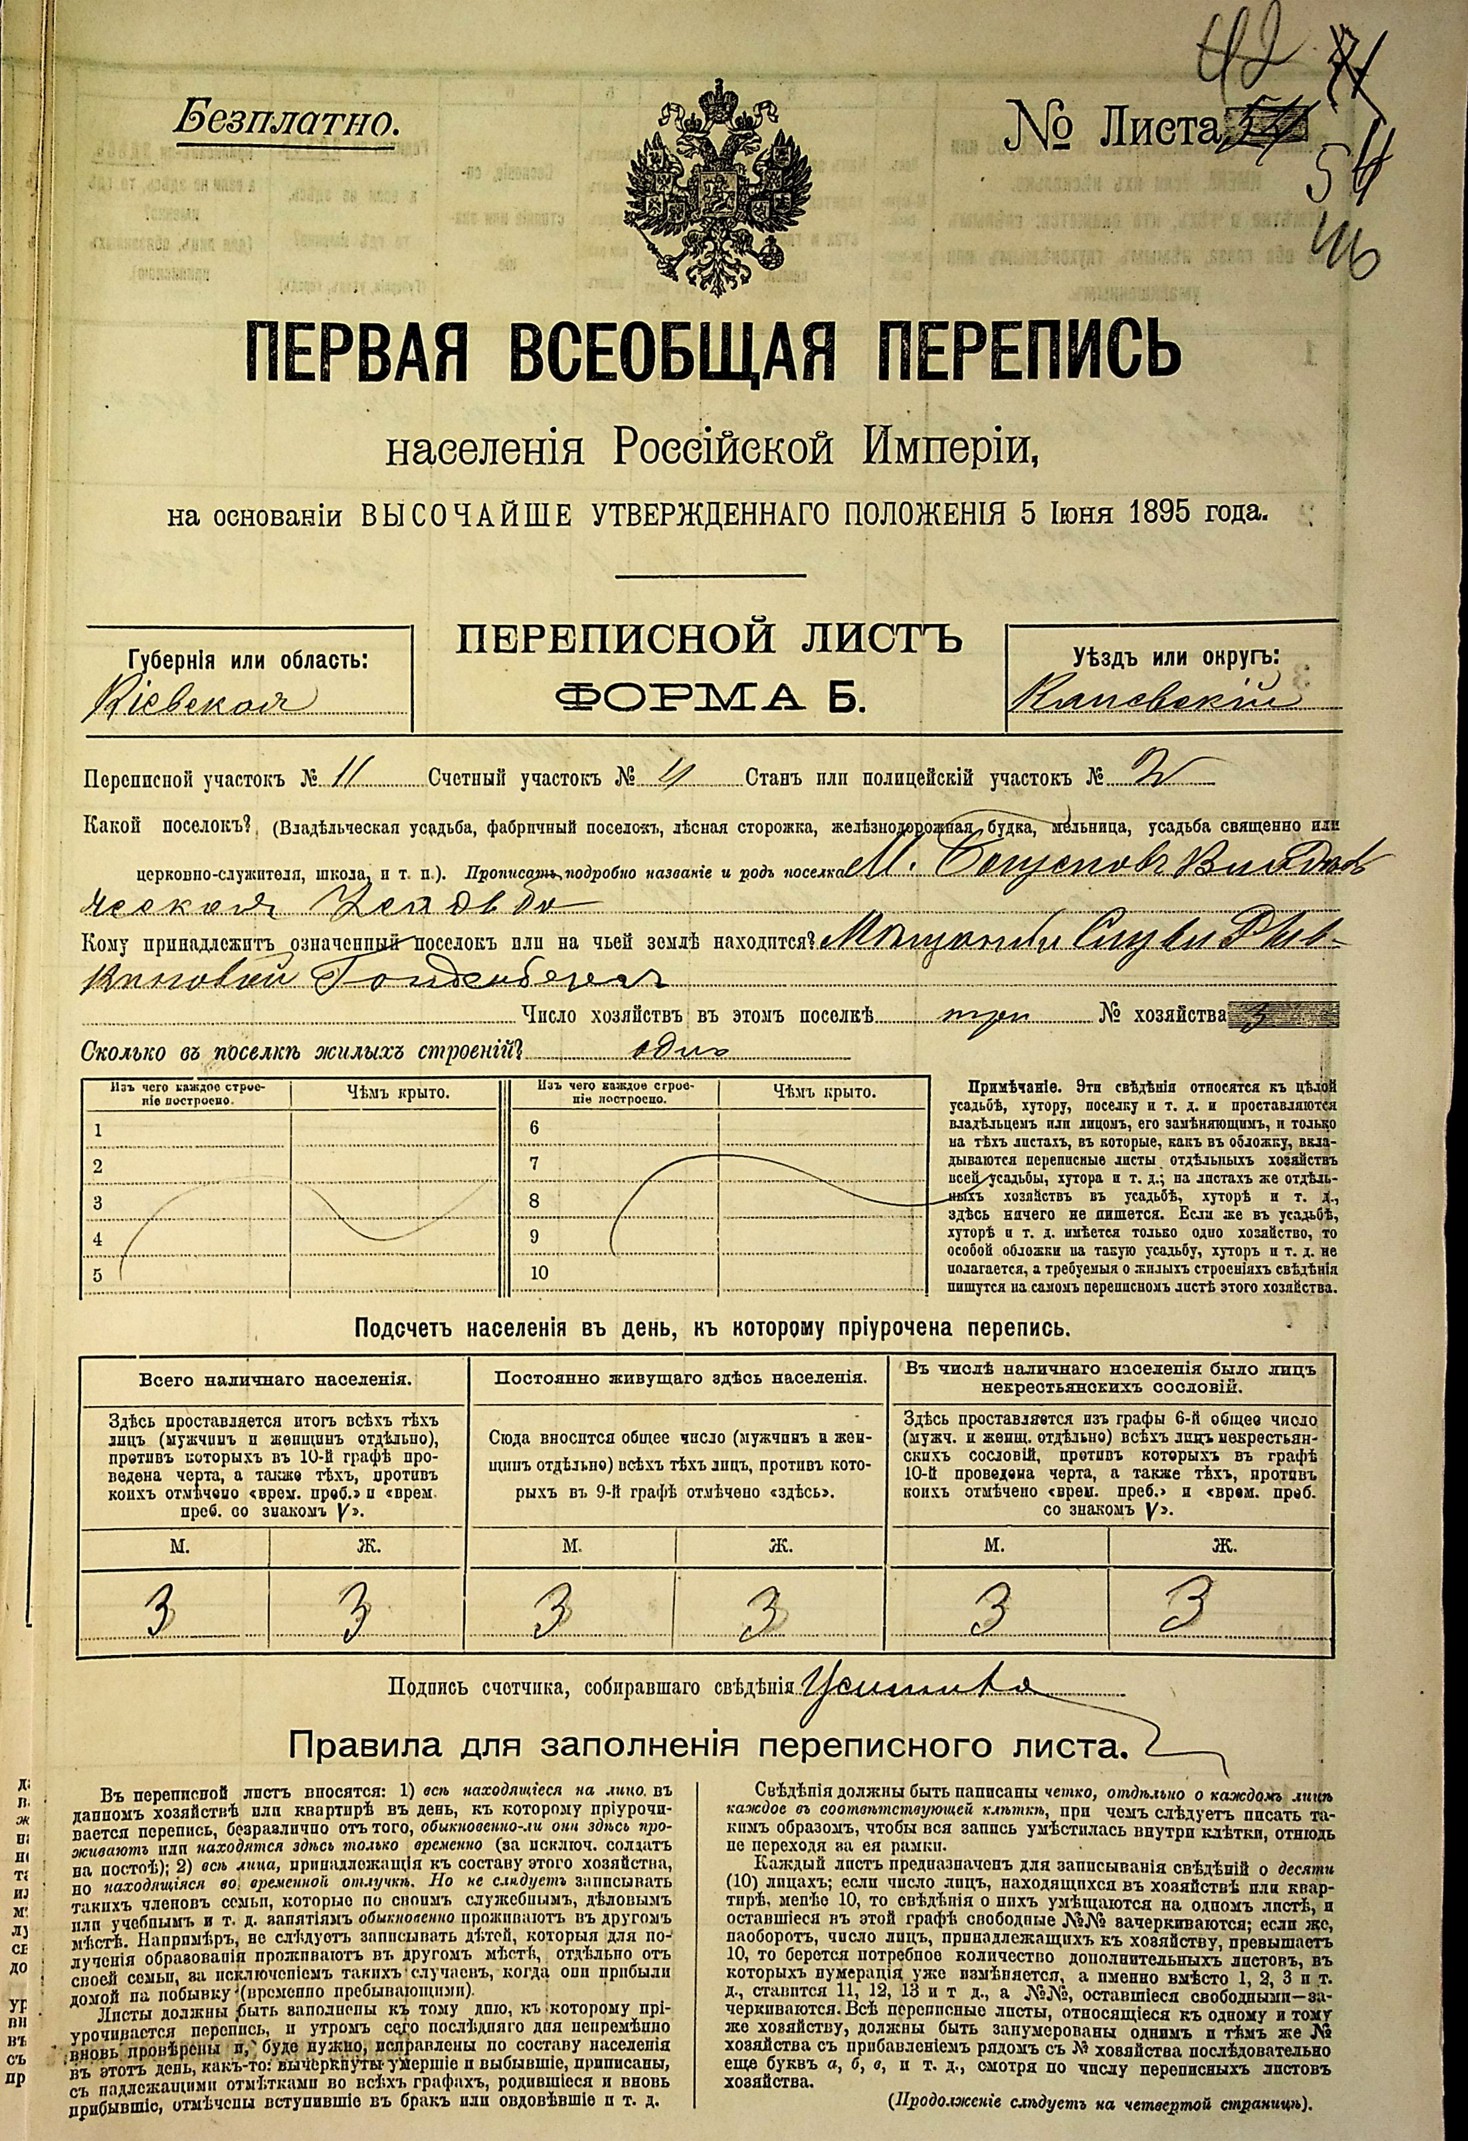 42
Безплатно.
№ Листа
54
ПЕРВАЯ ВСЕОБЩАЯ ПЕРЕПИСЬ
населенія Россійской Имперіи,
на основаніи ВЫСОЧАЙШЕ УТВЕРЖДЕННАГО ПОЛОЖЕНІЯ 5 Іюня 1895 года.
Губернія или область:
Кіевская
ПЕРЕПИСНОЙ ЛИСТЪ
ФОРМА Б.
Уѣздъ или округъ:
Каневскій
Переписной участокъ № 11 Счетный участокъ № 4 Станъ или полицейскій участокъ № 2
Какой поселокъ? (Владѣльческая усадьба, фабричный поселокъ, лѣсная сторожка, желѣзнодорожная будка, мельница, усадьба священно или
церковно-служителя, школа, и т. п.). Прописать подробно названіе и родъ поселка М. Богуславъ Владѣль
ческая Усадьба
Кому принадлежитъ означенный поселокъ или на чьей землѣ находится? Мѣщанки
Число хозяйствъ въ этомъ поселкѣ три № хозяйства 3
Сколько въ поселкѣ жилыхъ строеній? одно
Изъ чего каждое строе-
ніе построено.
Чѣмъ крыто.
Изъ чего каждое строе-
ніе построено.
Чѣмъ крыто.
1
2
3
4
5
6
7
8
9
10
Примѣчаніе. Эти свѣдѣнія относятся къ цѣлой
усадьбѣ, хутору, поселку и т. д. и проставляются
владѣльцемъ или лицомъ, его замѣняющимъ, и только
на тѣхъ листахъ, въ которые, какъ въ обложку, вкла-
дываются переписные листы отдѣльныхъ хозяйствъ
всей усадьбы, хутора и т. д.; на листахъ же отдѣль-
ныхъ хозяйствъ въ усадьбѣ, хуторѣ и т. д.,
здѣсь ничего не пишется. Если же въ усадьбѣ,
хуторѣ и т. д. имѣется только одно хозяйство, то
особой обложки на такую усадьбу, хуторъ и т. д. не
полагается, а требуемыя о жилыхъ строеніяхъ свѣдѣнія
пишутся на самомъ переписномъ листѣ этого хозяйства.
Подсчетъ населенія въ день, къ которому пріурочена перепись.
Всего наличнаго населенія.
Здѣсь проставляется итогъ всѣхъ тѣхъ
лицъ (мужчинъ и женщинъ отдѣльно),
противъ которыхъ въ 10-й графѣ про-
ведена черта, а также тѣхъ, противъ
коихъ отмѣчено «врем. преб.» и «врем.
преб. со знакомъ V».
Постоянно живущаго здѣсь населенія.
Сюда вносится общее число (мужчинъ и жен-
щинъ отдѣльно) всѣхъ тѣхъ лицъ, противъ кото-
рыхъ въ 9-й графѣ отмѣчено «здѣсь».
Въ числѣ наличнаго населенія было лицъ
некрестьянскихъ сословій.
Здѣсь проставляется изъ графы 6-й общее число
(мужч. и женщ. отдѣльно) всѣхъ лицъ некрестьян-
скихъ сословій, противъ которыхъ въ графѣ
10-й проведена черта, а также тѣхъ, противъ
коихъ отмѣчено «врем. преб.» и «врем. преб.
со знакомъ V».
М. Ж. М. Ж. М. Ж.
3 3 3 3 3 3
Подпись счетчика, собиравшаго свѣдѣнія
Правила для заполненія переписного листа.
Въ переписной листъ вносятся: 1) всѣ находящіеся на лицо въ
данномъ хозяйствѣ или квартирѣ въ день, къ которому пріурочи-
вается перепись, безразлично отъ того, обыкновенно-ли они здѣсь про-
живаютъ или находятся здѣсь только временно (за исключ. солдатъ
на постоѣ); 2) всѣ лица, принадлежащія къ составу этого хозяйства,
но находящіяся во временной отлучкѣ. Но не слѣдуетъ записывать
такихъ членовъ семьи, которые по своимъ служебнымъ, дѣловымъ
или учебнымъ и т. д. занятіямъ обыкновенно проживаютъ въ другомъ
мѣстѣ. Напримѣръ, не слѣдуетъ записывать дѣтей, которыя для по-
лученія образованія проживаютъ въ другомъ мѣстѣ, отдѣльно отъ
своей семьи, за исключеніемъ такихъ случаевъ, когда они прибыли
домой на побывку (временно пребывающими).
Листы должны быть заполнены къ тому дню, къ которому прі-
урочивается перепись, и утромъ сего послѣдняго дня непремѣнно
вновь провѣрены и, буде нужно, исправлены по составу населенія
въ этотъ день, какъ-то: вычеркнуты умершіе и выбывшіе, приписаны,
съ надлежащими отмѣтками во всѣхъ графахъ, родившіеся и вновь
прибывшіе, отмѣчены вступившіе въ бракъ или овдовѣвшіе и т. д.
Свѣдѣнія должны быть написаны четко, отдѣльно о каждомъ лицѣ
каждое въ соотвѣтствующей клѣткѣ, при чемъ слѣдуетъ писать та-
кимъ образомъ, чтобы вся запись умѣстилась внутри клѣтки, отнюдь
не переходя за ея рамки.
Каждый листъ предназначенъ для записыванія свѣдѣній о десяти
(10) лицахъ; если число лицъ, находящихся въ хозяйствѣ или квар-
тирѣ, менѣе 10, то свѣдѣнія о нихъ умѣщаются на одномъ листѣ, и
оставшіеся въ этой графѣ свободные №№ зачеркиваются; если же,
наоборотъ, число лицъ, принадлежащихъ къ хозяйству, превышаетъ
10, то берется потребное количество дополнительныхъ листовъ, въ
которыхъ нумерація уже измѣняется, а именно вмѣсто 1, 2, 3 и т.
д., ставится 11, 12, 13 и т д., а №№, оставшіеся свободными—за-
черкиваются. Всѣ переписные листы, относящіеся къ одному и тому
же хозяйству, должны быть занумерованы однимъ и тѣмъ же №
хозяйства съ прибавленіемъ рядомъ съ № хозяйства послѣдовательно
еще буквъ а, б, в, и т. д., смотря по числу переписныхъ листовъ
хозяйства.
(Продолженіе слѣдуетъ на четвертой страницѣ).